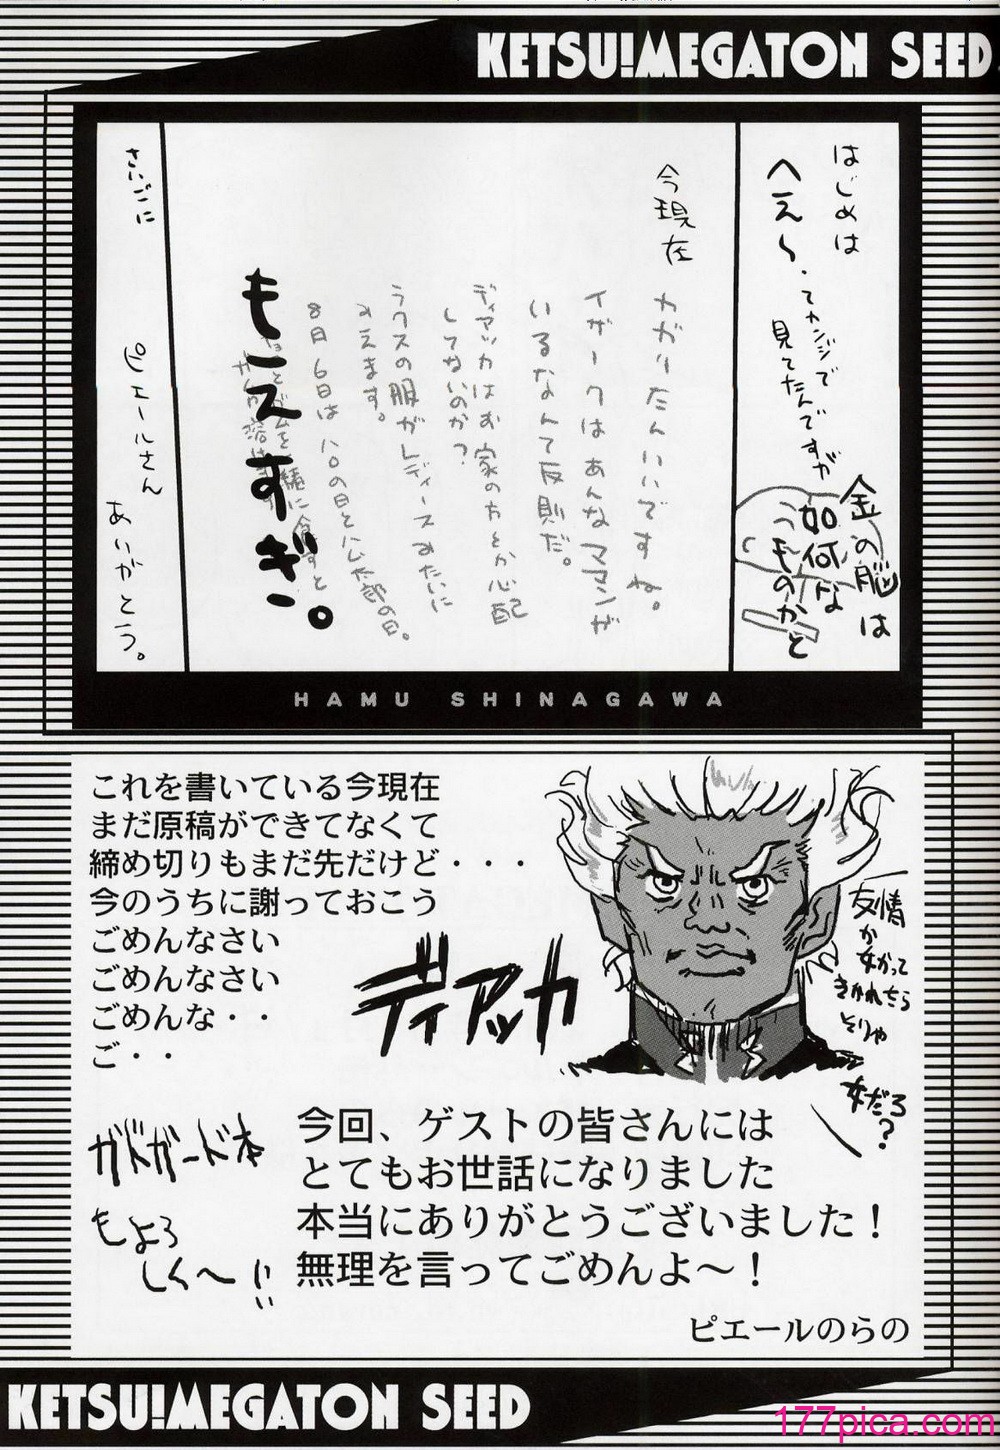 KETSU!MEGATON SEED
はじめは
へえ～、
てカンジで
見てたんですが
金の脳は
如何な
ものかと
今現在
カガリーたんいいですね。
イザークはあんなママンが
いるなんて反則だ。
ディアッカはお家の方とか心配
してないのか？
ラクスの服がレディースみたいに
みえます。
8月6日はハムの日とハム太郎の日。
もえすぎ。
さいごに
ピエールさん
ありがとう。
HAMU SHINAGAWA
これを書いている今現在
まだ原稿ができてなくて
締め切りもまだ先だけど・・・
今のうちに謝っておこう
ごめんなさい
ごめんなさい
ごめんな・・
ご・・
ディアッカ
友情
か女かって
きかれたら
そりゃ
女だろ？
ガドガード本
もよろ
しく～!!
今回、ゲストの皆さんには
とてもお世話になりました
本当にありがとうございました！
無理を言ってごめんよ～！
ピエールのらの
KETSU!MEGATON SEED
177pica.com